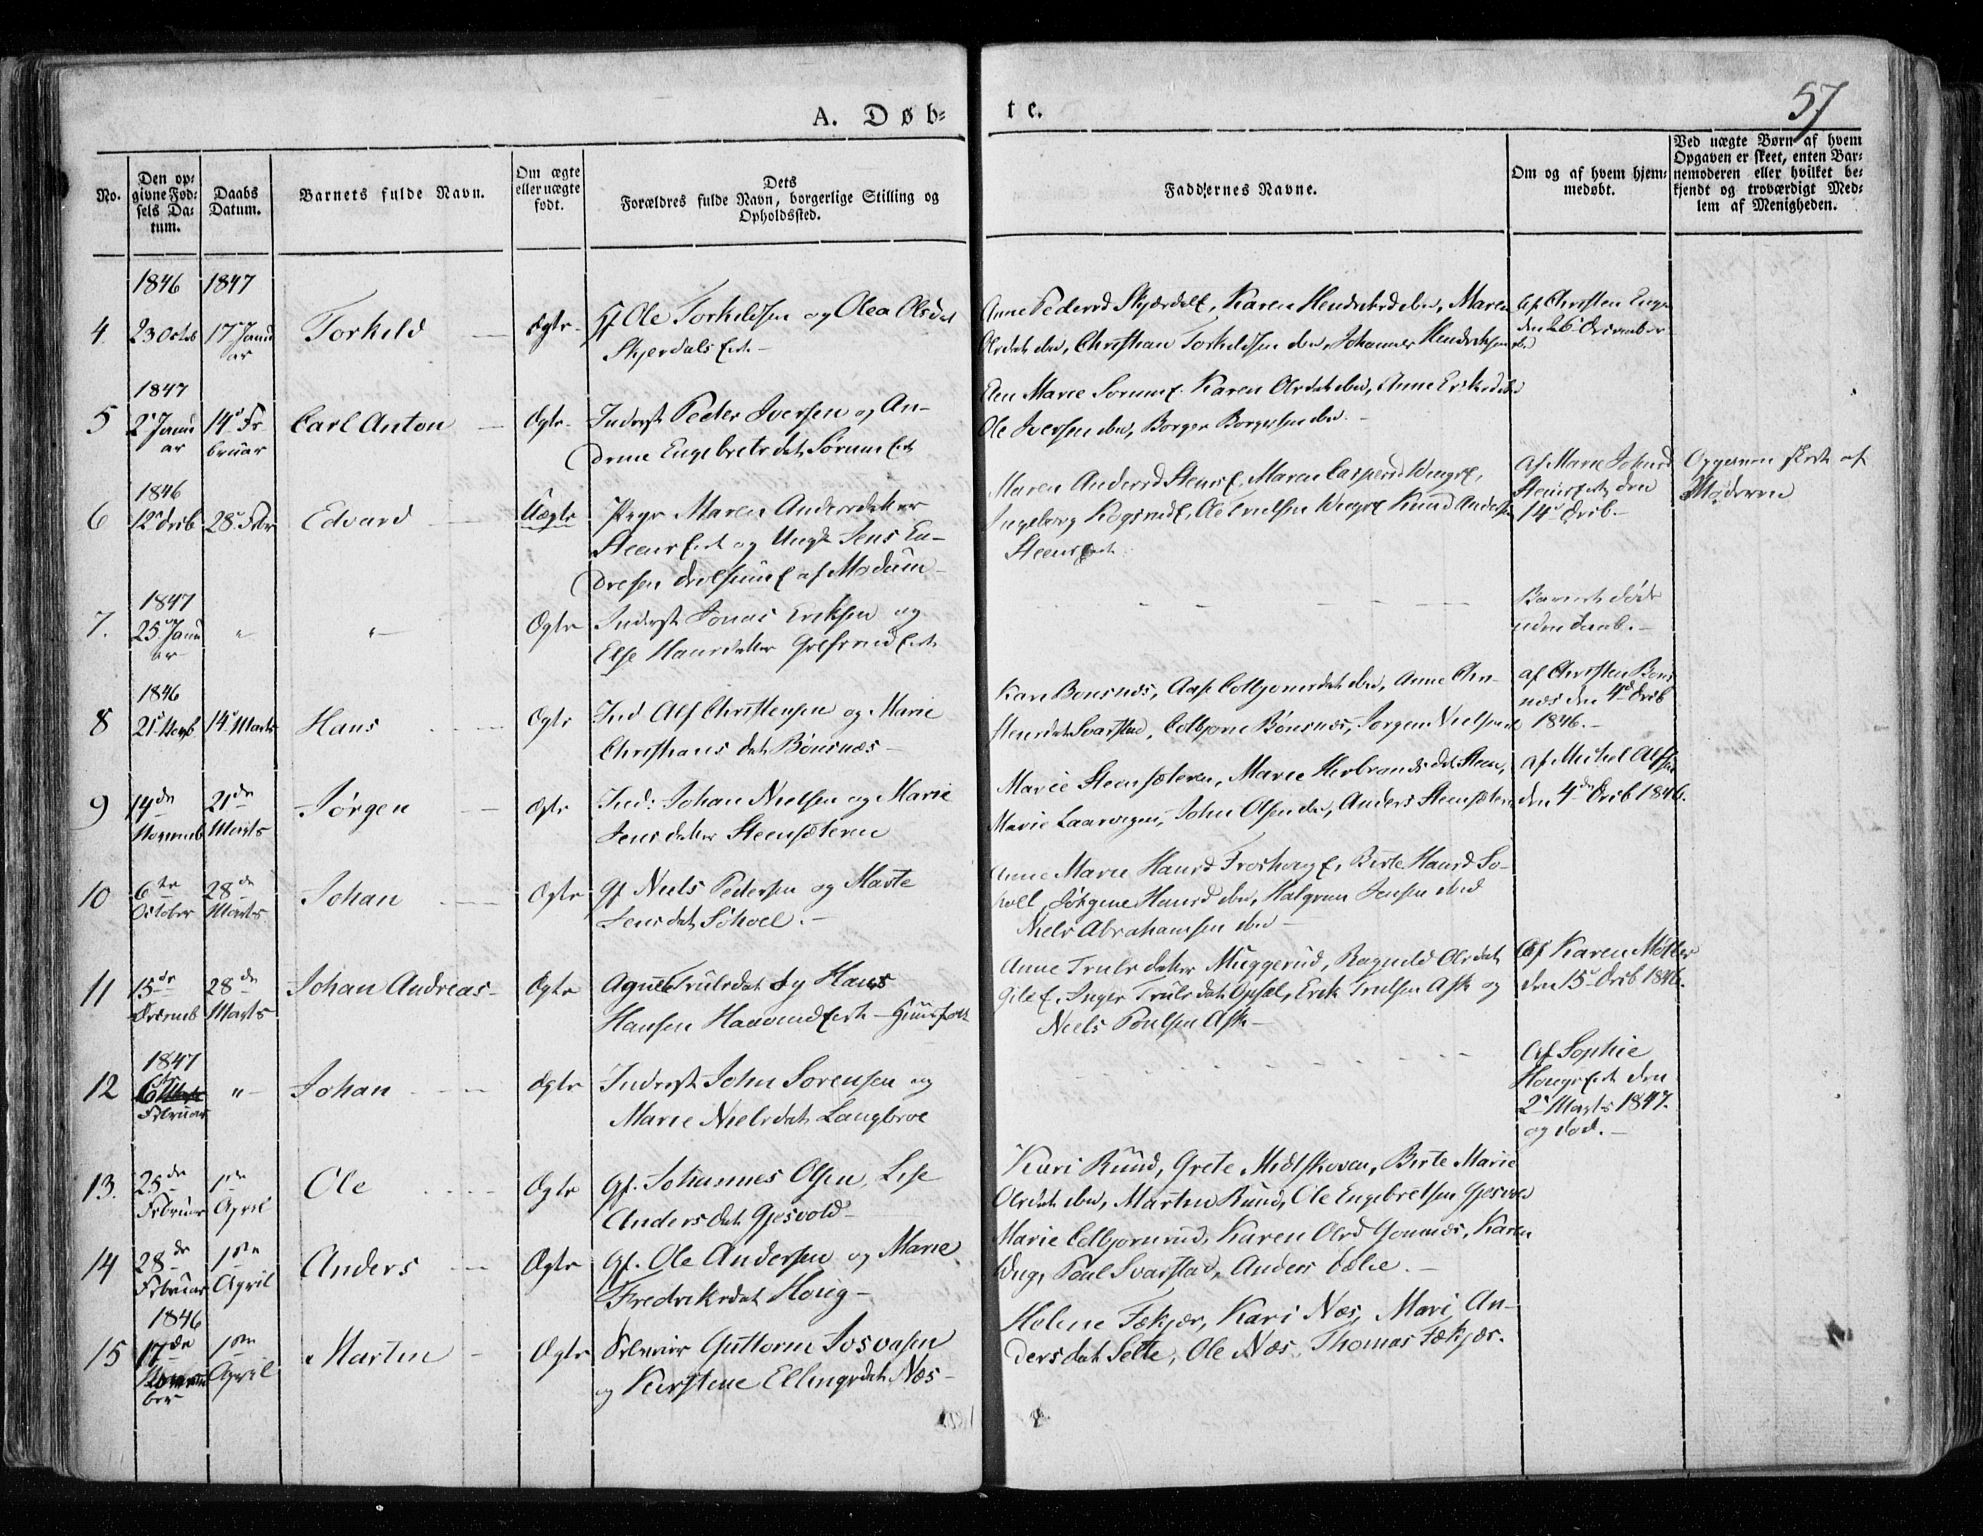 57
A. Døb-
te.
No.
Den op-
givne Fød-
sels Da-
tum.
Daabs
Datum.
Barnets fulde Navn.
Om ægte
eller uægte
født.
Dets
Forældres fulde Navn, borgerlige Stilling og
Opholdssted.
Faddernes Navne.
Om og af hvem hjem-
medøbt.
Ved uægte Børn af hvem
Opgaven er skeet, enten Bar-
nemoderen eller hvilket be-
kjendt og troværdigt Med-
lem af Menigheden.
1846 1847
4. 23 Octob 17 Janu
ar
Torkild
Ægte
Gf Ole Torkildsen og Olea Olsdat
Skjerdals Eit
Anne Pedersd Skjærdals, Karen Hendriksd ibd, Maren
Olsdat ibd, Christian Torkildsen ibd, Johannes Hendriksen ibd
Af Christen Enger
den 26 December
1847
5 2 Janu
ar
14 Fe
bruar
Carl Anton
Ægte
Inderst Peder Iversen og An-
drine Engebretsdat Sørum Eit
Elen Marie Sørum, Karen Olsdat ibd, Anne Eriksdat
Ole Iversen ibd, Borger Borgersen ibd
1846
6 12 Decb 28 Febr
Edvard
Uægte
Pige Maren Andersdatter
Steens Eit og Ungk Jens En-
dresen af Modum
Maren Andersd Steens, Maren Caspersd
Ingeborg Knud Anders
Steens Eit
Af Marie Johnsd
Steens Eit den
14 Decb
Opgaven skede af
Moderen
1847
7. 25 Janu
ar
Ægte
Inderst Jonas Eriksen og
Else Hansdatter Eit
Barnet døde
uden Daab.
1846
8 21 Novb 14 Marts
Hans
Ægte
Ind Alf Christensen og Marie
Christiansdat Bønsnæs
Kari Bønsnæs, Aase Colbjørnsdat ibd, Anne Chri-
stensdat Svarstad, Colbjørn Bønsnæs, Jørgen Nielsen
af Christen Bøns
næs den 4 Decb
1846.
9 14de
Novemb
21de
Marts
Jørgen
Ægte
Ind: Johan Nielsen og Marie
Jensdatter Steensæteren
Marie Steensæteren, Marie Herbrandsdat Steen,
Marie Laarvigen, John Olsen ibd, Anders Steensæteren
af Mickel Alfsen
den 4de Decb 1846.
10 6te
October
28de
Marts
Johan
Ægte
Gf Niels Pedersen og Marte
Jensdat Sohoel.
Anne Marie Hansd Froshoug, Birte Hansd So-
hoel, Jørgine Hansd ibd, Halgrim Jensen ibd
Niels Abrahamsen ibd
11 15de
Decemb
28de
Marts
Johan Andreas
Ægte
Agnete Trulsdat og Hans
Hansen Eit
Anne Trulsdatter Muggerud, Ragnild Olsdat
Gile, Inger Trulsdat Opsal, Erik Trulsen Ask og
Niels Poulsen Ask
Af Karen Møller
den 15 Decb 1846.
1847
12 6te
Februar
Johan
Ægte
Inderst John Sørensen og
Marie Nielsdat Langbroe
Af Sophie
Hougs Eit den
2 Marts 1847.
og død.
13. 25de
Februar
1ste
April
Ole
Ægte
Gf. Johannes Olsen, Lise
Andersdat Gjesvold
Kari Rund, Grete Midtskoven, Birte Marie
Olsdat ibd, Martin Rund, Ole Engebretsen Gjesvold
14 28de
Februar
1ste
April
Anders
Ægte
Gf. Ole Andersen og Marie
Fredriksdat Houg
Marie Colbjørnrud, Karen Olsd Gomnæs, Karen
Poul Svarstad, Anders
1846
15 17de
ber
1ste
April
Martin
Ægte
Guttorm Josvasen
og Kirstine Ellingsdat Næs
Helene Fekjær, Kari Næs, Mari An-
dersdat Selte, Ole Næs, Thomas Fekjær.